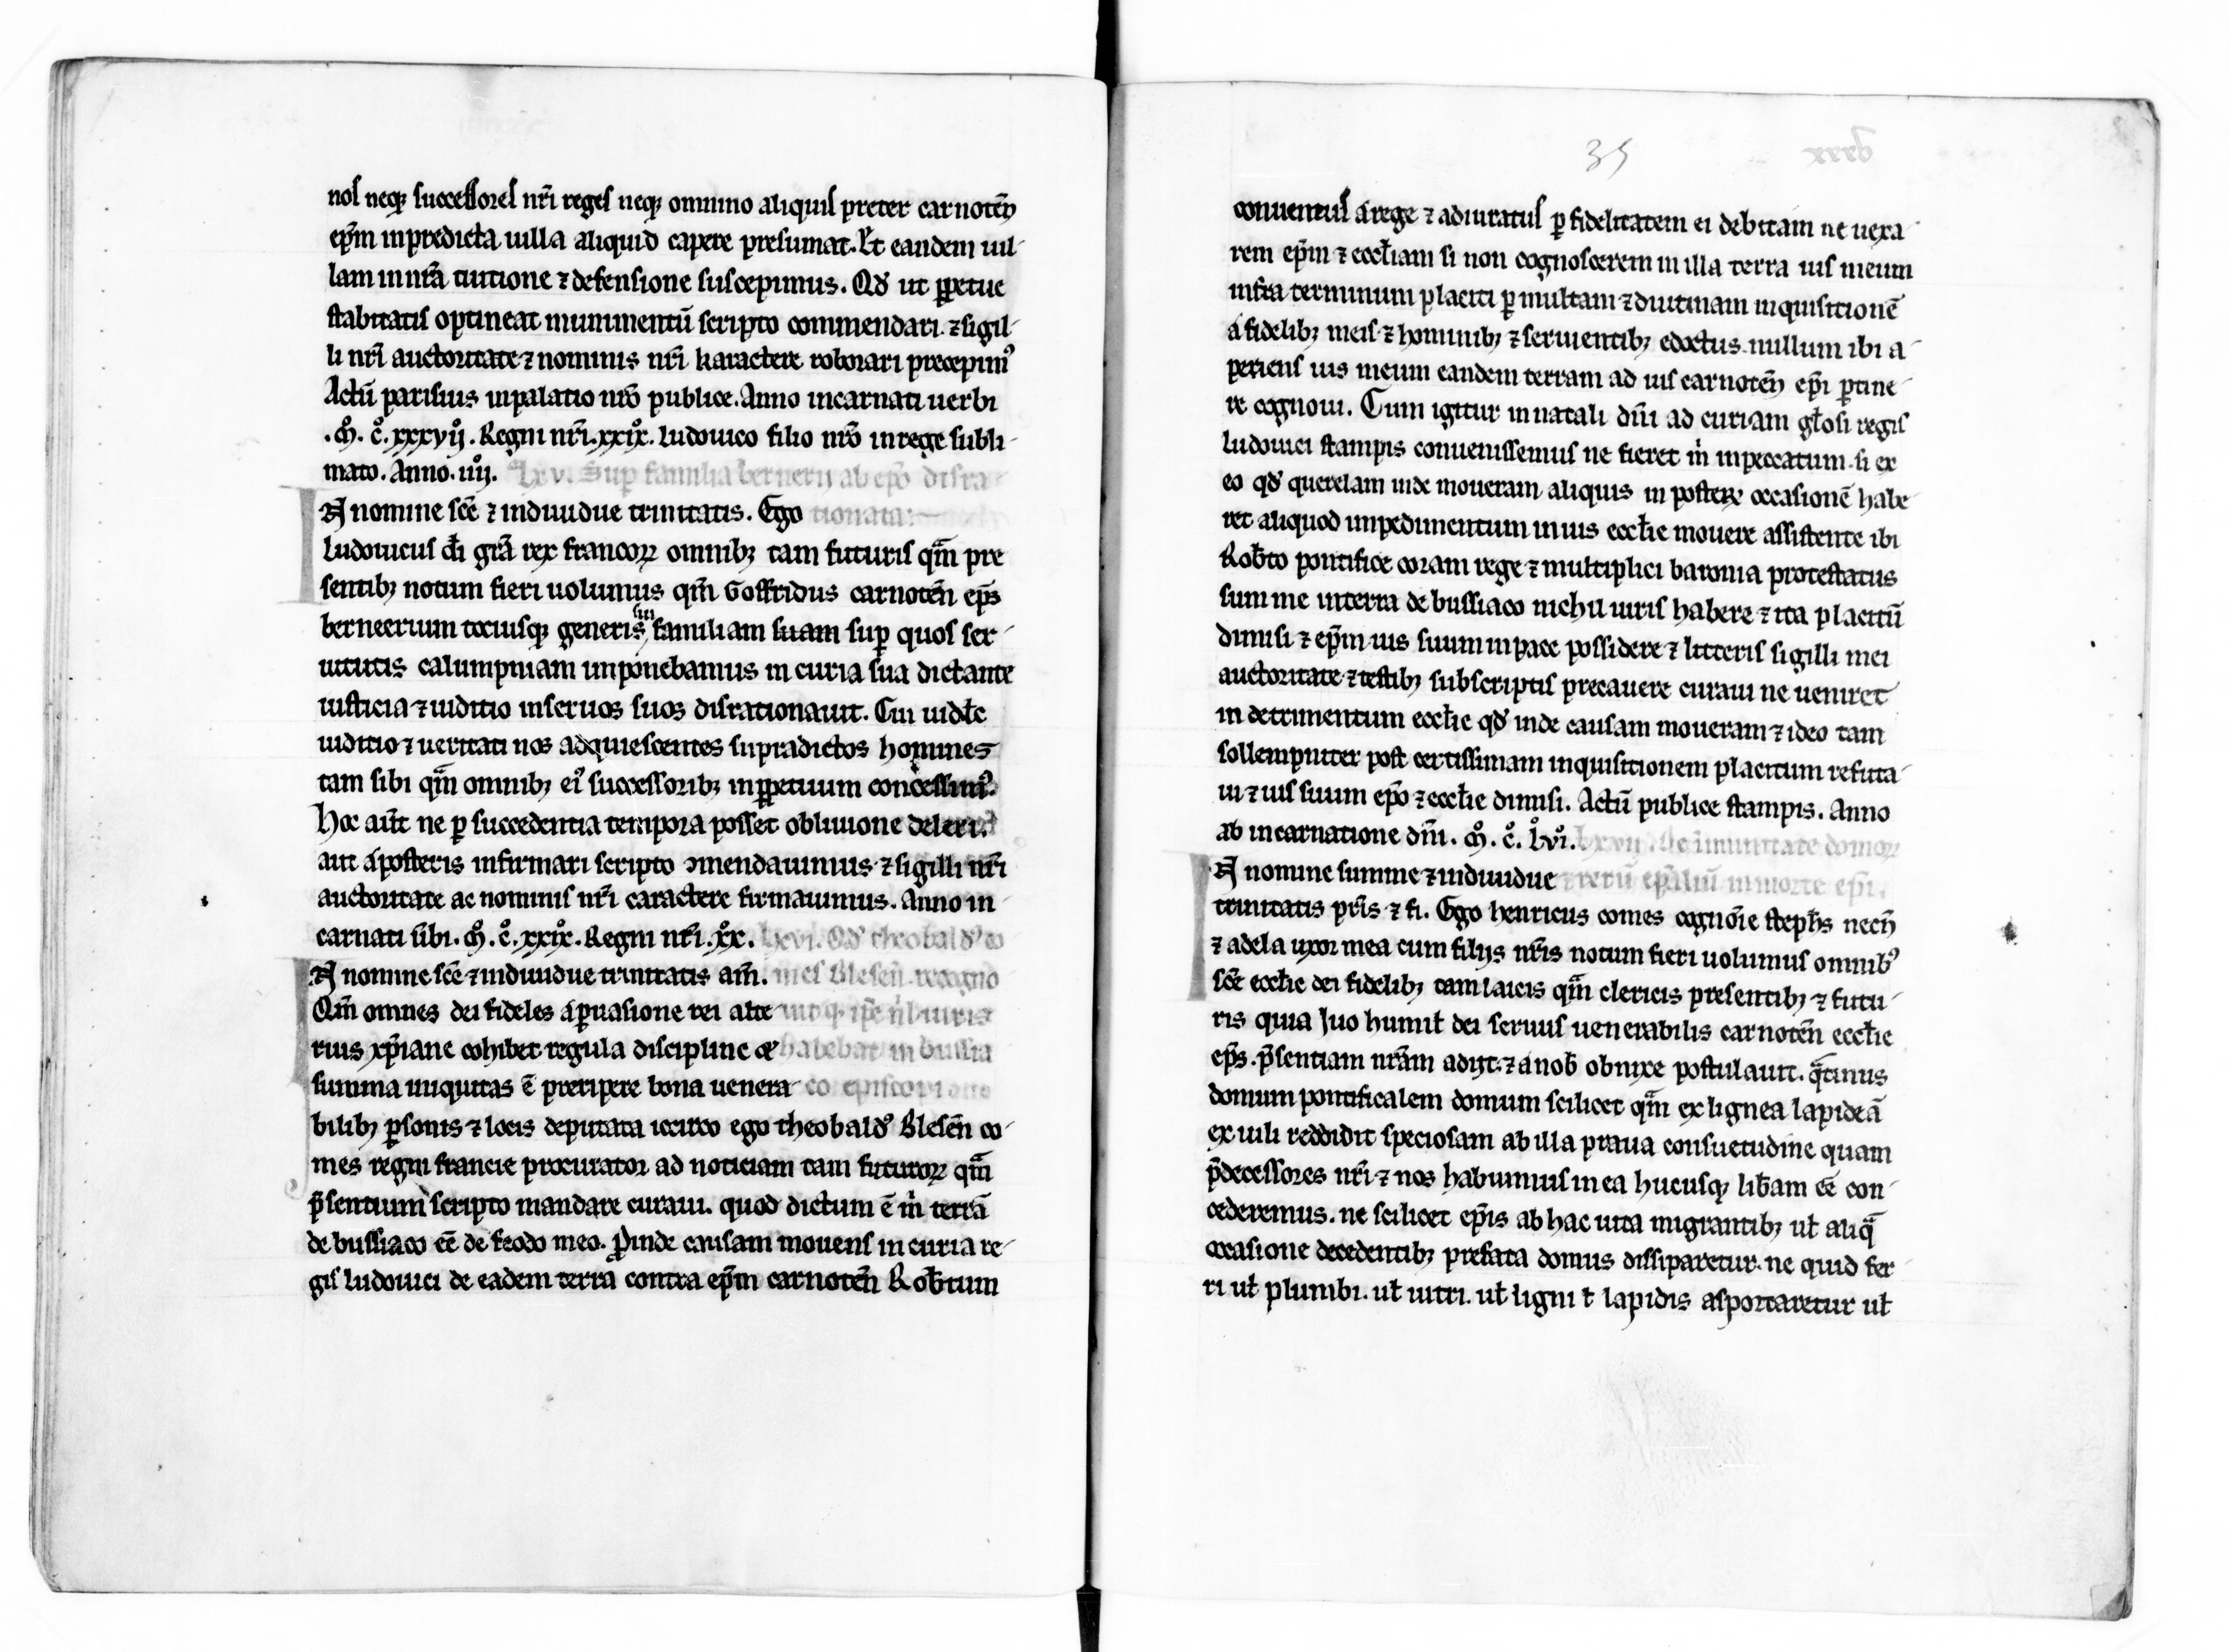 nos neqꝫ successores nr̄i reges neqꝫ omnino aliquis preter carnoten̄
ep̄m inpredicta uilla aliquid capere presumat. Et eandem uil-
lam in nr̄a tuitione ⁊ defensione suscepimus. Qđ ut ꝑpetue
stabitatis optineat munimentū scripto commendari. ⁊ sigil-
li nr̄i auctoritate ⁊ nominis nr̄i karactere roborari precepimꝰ
Actū parisius inpalatio nr̄o publice. Anno incarnati uerbi
.ṁ.c̊.xxxvij. Regni nr̄i.xxix. Ludouico filio nr̄o inrege subli-
mato. Anno.iiij. lxv. Suꝑ familia bernerij ab ep̄o disra-
IN nomine sc̄e ⁊ indiuidue trinitatis. Ego tionata:
Ludouicus dī gr̄a rex francoꝝ omnibꝫ tam futuris qm̄ pre
sentibꝫ notum fieri uolumus qm̄ Goffridus carnoten̄ ep̄s
berneerium totiusqꝫ generis sui familiam suam suꝑ quos ser-
uitutis calumpniam imponebamus in curia sua dictante
iusticia ⁊ iuditio inseruos suos disrationauit. Cui uidłc
iuditio ⁊ ueritati nos adquiescentes supradictos homines
tam sibi qm̄ omnibꝫ eiꝰ successoribꝫ inꝑpetuum concessimꝰ.
Hoc aūt ne ꝑ succedentia tempora posset obliuione deleri.
aut áposteris infirmari scripto ꝯmendauimus ⁊ sigilli nr̄i
auctoritate ac nominis nr̄i caractere firmauimus. Anno in-
carnati ūbi.ṁ.c̊.xxix. Regni nr̄i.xx. lxvi. Qđ theobaldꝰ co
IN nomine sc̄e ⁊ indiuidue trinitatis am̄. mes Blesen̄. recogno
Qm̄ omnes dei fideles áꝑuasione rei alte- uit qꝫ ip̄e nl̄ iuris
rius xp̄iane cohibet regula discipline ⁊ habebat in bussia
summa iniquitas ē preripere bona uenera- co episcopi
bilibꝫ ꝑsonis ⁊ locis deputata iccirco ego theobaldꝰ Blesen̄ co-
mes regni francie procurator ad noticiam tam futuroꝝ qm̄
p̄sentium scripto mandare curaui. quod dictum ē m̄ terrā
de bussiaco ēē de feodo meo. ꝓinde causam mouens in curia re-
gis ludouici de eadem terra contra ep̄m carnoten̄ Rob̄tum
35
xxxv
conuentus árege ⁊ adiuratus ꝑ fidelitatem ei debitam ne uexa-
rem ep̄m ⁊ eccłiam si non cognoscerem in illa terra ius meum
infra terminum placiti ꝑ multam ⁊ diutinam inquisitionē
á fidelibꝫ meis ⁊ hominibꝫ ⁊ seruientibꝫ edoctus. nullum ibi a-
periens ius meum eandem terram ad ius carnoten̄ ep̄i ꝑtine-
re cognoui. Cum igitur in natali dn̄i ad curiam głosi regis
ludouici stampis conuenissemus ne fieret m̄ inpeccatum. si ex
eo qđ querelam inde moueram aliquis in posteꝝ occasionē habe
ret aliquod impedimentum in ius eccłie mouere assistente ibi
Rob̄to pontifice coram rege ⁊ multiplici baronia protestatus
sum me interra de bussiaco nichil iuris habere ⁊ ita placitū
dimisi ⁊ ep̄m ius suum inpace possidere ⁊ litteris sigilli mei
auctoritate ⁊ testibꝫ subscriptis precauere curaui ne ueniret
in detrimentum eccłie qđ inde causam moueram ⁊ ideo tam
sollempniter post certissimam inquisitionem placitum refuta-
ui ⁊ ius suum ep̄o ⁊ eccłie dimisi. Actū publice stampis. Anno
ab incarnatione dn̄i.ṁ.c̊.lvi. lxvij. De īmunitate domoꝝ
IN nomine summe ⁊ indiuidue ⁊ rerū ep̄aliū in morte ep̄i.
trinitatis pr̄is ⁊ fi. Ego henricus comes cognom̄e stephs necn̄
⁊ adela uxor mea cum filijs nr̄is notum fieri uolumus omnibꝰ
sc̄e eccłie dei fidelibꝫ tam laicis qm̄ clericis presentibꝫ ⁊ futu-
ris quia Iuo humił dei seruus uenerabilis carnoten̄ eccłie
ep̄s. p̄sentiam nr̄am adijt. ⁊ á nob̄ obnixe postulauit. qͣtinus
domum pontificalem domum scilicet qm̄ ex lignea lapideā
ex uili reddidit speciosam ab illa praua consuetudine quam
p̄decessores nr̄i ⁊ nos habuimus in ea hucusqꝫ lib̄am ēē con-
cederemus. ne scilicet ep̄is ab hac uita migrantibꝫ uł aliqͣ
occasione decedentibꝫ prefata domus dissiparetur. ne quid fer-
ri uł plumbi. uł uitri. uł ligni ł lapidis asportaretur uł